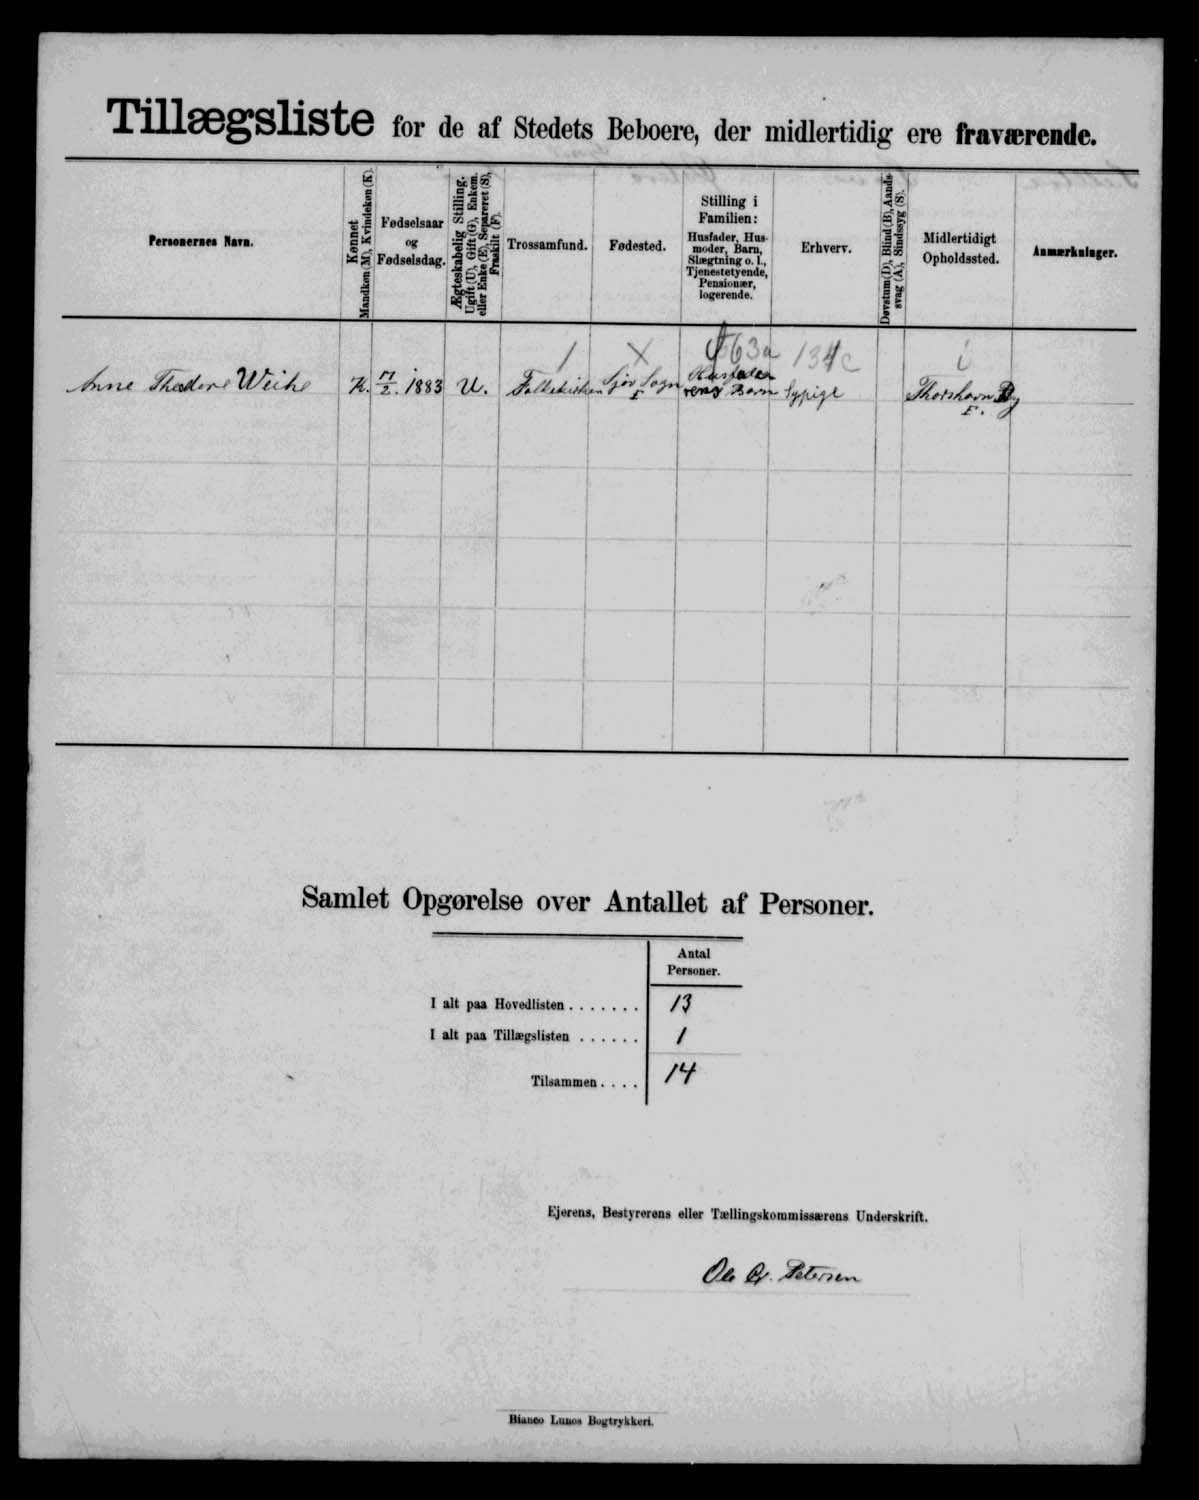 Tillægsliste for de af Stedets Beboere, der midlertidig ere fraværende.
Personernes Navn.
Kønnet
Mandkøn (M), Kvindekøn (K).
Fødselsaar
og
Fødselsdag.
Ægteskabelig Stilling.
Ugift (U), Gift (G), Enkem.
eller Enke (E), Separeret (S),
Fraskilt (F).
Trossamfund.
Fødested.
Stilling i
Familien:
Husfader, Hus-
moder, Barn,
Slægtning o. l.,
Tjenestetyende,
Pensionær,
logerende.
Erhverv.
Døvstum (D), Blind (B), Aands-
svag (A), Sindssyg (S).
Midlertidigt
Opholdssted.
Anmærkninger.
1 X 63a 134c i
Anne Thedore Weihe K. 17/2. 1883 U. Folkekirken Sjov Sogn Husfade-
rens Barn Sypige Thorshavn By
F. F.
Samlet Opgørelse over Antallet af Personer.
Antal
Personer.
I alt paa Hovedlisten . . . . . . . 13
I alt paa Tillægslisten . . . . . . 1
Tilsammen . . . . 14
Ejerens, Bestyrerens eller Tællingskommissærens Underskrift.
Ole Petersen
Bianco Lunos Bogtrykkeri.